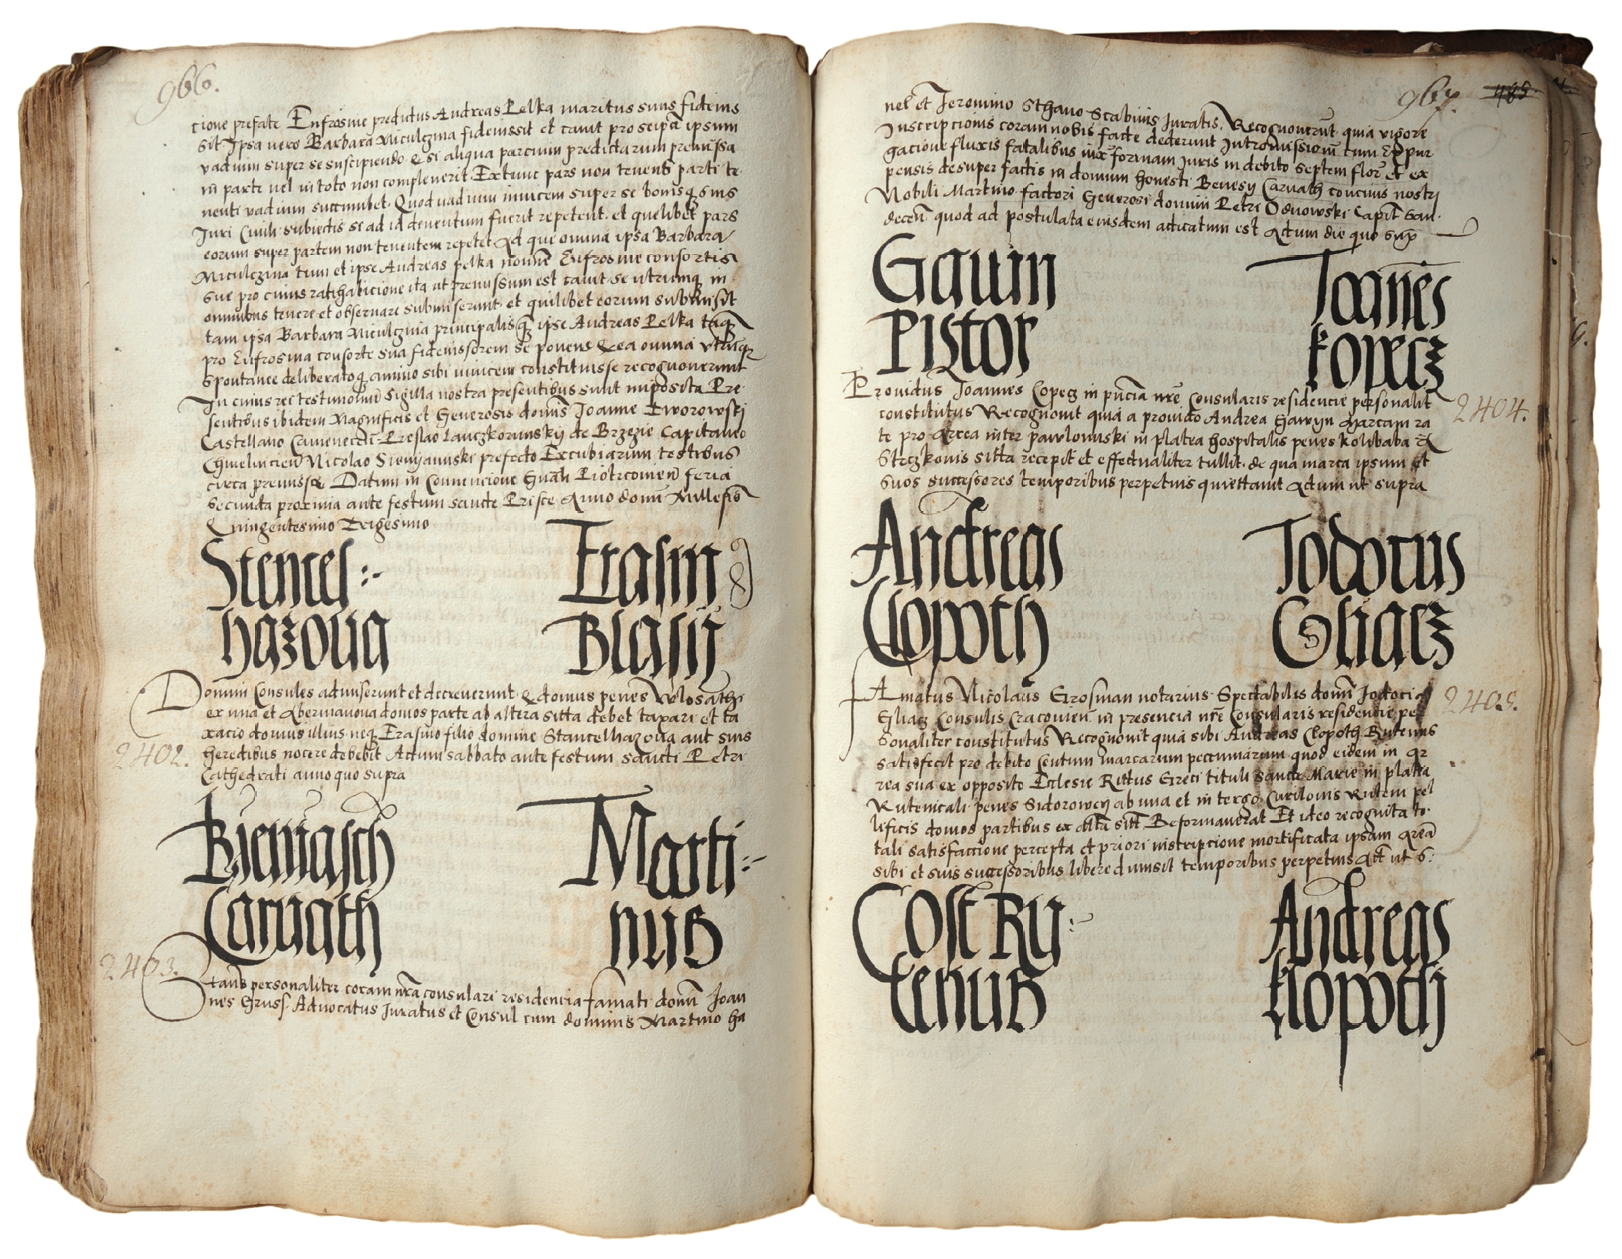 966.
cione prefate Eufrosine predictus Andreas Pelka maritus suus fideius
sit Ipsa vero Barbara Miculczina fideiussit et cauit pro se ipsum
vadium super se suscipiendo & si aliqua parcium predictarum premissa
in parte vel in toto non compleuerit Extunc pars non tenens parti te
nenti vadium succumbet. Quod vadium inuicem super se bonisq suis
Juri Ciuili subiectis se ad id deuentum fuerit repetent. et quelibet pars
eorum super partem non tenentem repetet Ad que omnia ipsa Barbara
Miculczina tum et ipse Andreas pelka nomine Eufrosine consortis
sue pro cuius ratihabicione ita ut premissum est cauit se utrumq in
omnibus tenere et obseruare submiserunt. et quilibet eorum submisit
tam ipsa Barbara Miculczina principalisq ipse Andreas Pelka
pro Eufrosina consorte sua fideiussorem se ponens & ea omnia utriusq
spontanee deliberatoq animo sibi inuicem constituisse recognouerunt
In cuius rei testimoniu Sigilla nostra presentibus sunt imposita Pre
sentibus ibidem Magnificis et Generosis dominis Joanne Tworowski
Castellano Camenecen. Preslao Lanczkorunskij de Brzezie Capitaneo
Chmelnicien Nicolao Sienyawski prefecto Excubiarum testibus
circa premissa. Datum in Conuencione Gnali Piotrcouien feria
Secunda proxima ante festum sancte Prisce Anno domi Millesio
Quingentesimo Trigesimo
Stencel Erasm
hazoua Blasij
Domini Consules admiserunt et decreuerunt. Q domus penes Wolosathy
ex una et Abermanoua domos parte ab altera sitta debet taxari et ta
xacio domus illius neq Erasmo filio domine Stancelhazoua aut suis
2402.
heredibus nocere debebit Actum sabbato ante festum sancti Petri
Cathedrati anno quo supra
Bieniasch Marti
Caruath nus
2403.
Stans personaliter coram nra consulari residencia famati domi Joan
nes Gruss. Aduocatus Juratus et Consul cum dominis Martino ha
967. 485
nel et Jeronimo Sthano Scabinis Juratis. Recognouerut quia vigore
Inscripcionis coram nobis facte dederunt Intromissionem cum Expur
gacione fluxis fatalibus iux formam Juris in debito septem flor et ex
pensis desuper factis in domum honesti Benesy Caruath conciuis nostri
Nobili Martino factori Generosi domini Petri Odnowski Capit San
decen quod ad postulata eiusdem adiicatum est Actum die quo sup
Gawin Joannes
Pistor kopecz
Prouidus Joannes Copecz in pncia nre Consularis residencie personalit
2404.
constitutus Recognouit quia a prouido Andrea Gawyn Marcam ra
te pro Area inter pawlowski in platea hospitalis penes kolibaba et
Steczkonis sitta recepit et effectualiter tullit. de qua marca ipsum et
suos successores temporibus perpetuis quiettauit Actum ut supra
Andreas Jodocus
Clopoth Gliacz
Famatus Nicolaus Grosman notarius Spectabilis domi Jodoci
2405.
Gliacz Consulis Cracouien in presencia nre Consularis residencie per
sonaliter constitutus Recognouit quia sibi Andreas Clopoth Rutenus
satisfecit pro debito Centum marcarum pecuniarum quod eidem in ar
rea sua ex opposito Ecclesie Rittus Greci tituli sancte Marie in platea
Rutenicali penes Sidorowcy ab una et in tergo Carilonis Ruteni pel
lificis domos partibus ex alta sitt Reformauerat Et ideo recognita to
tali satisfaccione percepta et priori inscripcione mortificata ipsam Area
sibi et suis successoribus libere dimisit temporibus perpetuis Act ut s.
Cost Ru Andreas
tenus klopoth